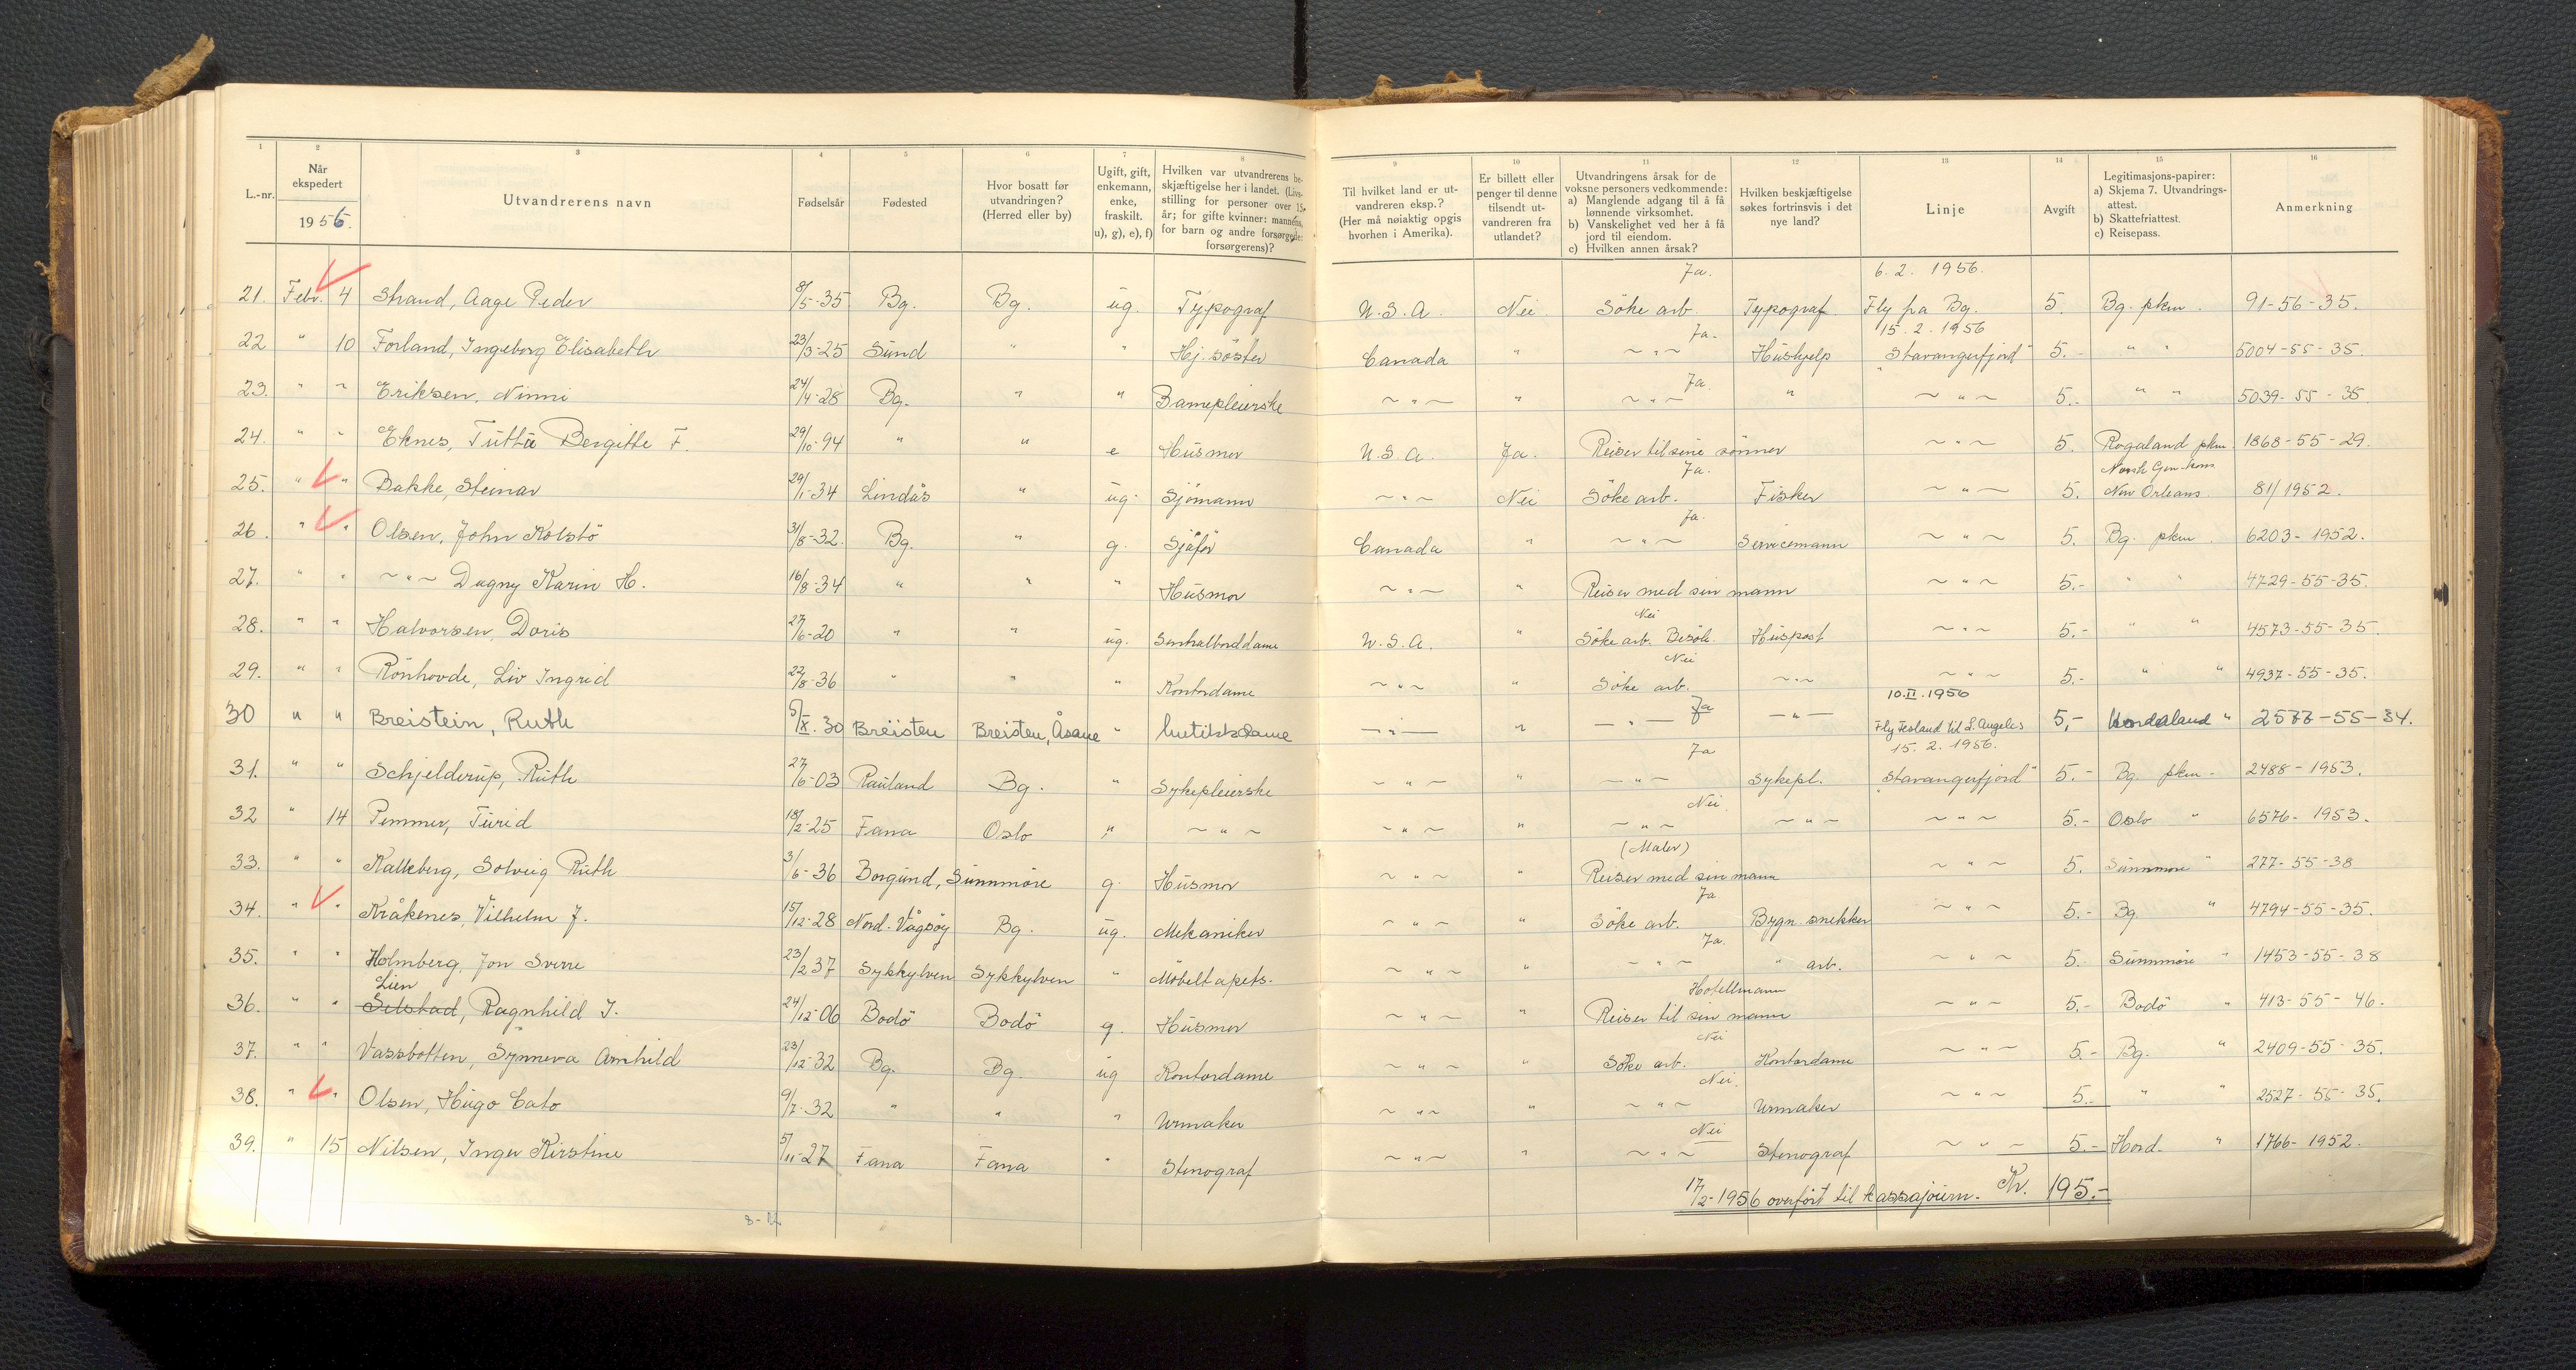 1 2 3 4 5 6 7 8 9 10 11 12 13 14 15 16
L.-nr. | Når ekspedert 1956. | Utvandrerens navn | Fødselsår | Fødested | Hvor bosatt før utvandringen? (Herred eller by) | Ugift, gift, enkemann, enke, fraskilt. u), g), e), f) | Hvilken var utvandrerens beskjæftigelse her i landet. (Livsstilling for personer over 15 år; for gifte kvinner: mannens, for barn og andre forsørgede: forsørgerens)? | Til hvilket land er utvandreren eksp.? (Her må nøiaktig opgis hvorhen i Amerika). | Er billett eller penger til denne tilsendt utvandreren fra utlandet? | Utvandringens årsak for de voksne personers vedkommende: a) Manglende adgang til å få lønnende virksomhet. b) Vanskelighet ved her å få jord til eiendom. c) Hvilken annen årsak? | Hvilken beskjæftigelse søkes fortrinsvis i det nye land? | Linje | Avgift | Legitimasjons-papirer: a) Skjema 7. Utvandrings-attest. b) Skattefriattest. c) Reisepass. | Anmerkning
Ja. 6. 2. 1956.
21. Febr. 4 Strand, Aage Peder 8/5-35 Bg. Bg. ug. Typograf U.S.A. Nei Söke arb. Typograf Fly fra Bg. 5. Bg. pkm. 91-56-35.
Ja. 15. 2. 1956
22 " 10 Forland, Ingeborg Elisabeth 23/3-25 Sund " " Hj. söster Canada " ~"~ Hushjelp "Stavangerfjord" 5.- " " 5004-55-35.
Ja.
23. " ~ Eriksen, Ninni 24/4-28 Bg. " " Barnepleierske ~"~ " ~"~ " ~"~ 5.- " " 5039-55-35.
24. " " Eknes, Tutta Bergitte F. 29/10-94 " " e Husmor U.S.A. Ja. Reiser til sine sönner ~"~ 5. Rogaland pkm. 1868-55-29.
Ja. Norsk Gen.kons
25. " " Bakke, Steinar 29/1-34 Lindås " ug. Sjömann ~"~ Nei Söke arb. Fisker ~"~ 5. New Orleans 81/1952.
Ja.
26. " " Olsen, John Kolstö 31/8-32. Bg. " g. Sjåför Canada " ~"~ Servicemann ~"~ 5. Bg. pkm. 6203-1952.
27. " " ~"~ Dagny Karin H. 16/8-34 " " " Husmor ~"~ " Reiser med sin mann ~"~ 5.- " " 4729-55-35.
Nei
28. " " Halvorsen, Doris 27/6-20 " " ug. Sentralborddame U.S.A. " Söke arb. Besök. Huspost ~"~ 5.- " " 4573-55-35.
Nei
29. " " Rönhovde, Liv Ingrid 22/8-36 " " " Kontordame ~"~ " Söke arb. ~"~ ~"~ 5.- " " 4937-55-35.
Ja 10.II.1956
30 " " Breistein, Ruth 5/IX.30 Breisten Breisten, Åsane " butikkdame —"— " —"— —"— Fly Flesland til L. Angeles 5,- Hordaland " 2577-55-34.
Ja 15. 2. 1956.
31. " " Schjelderup, Ruth 27/6-03 Rauland Bg. " Sykepleierske ~"~ " ~"~ Sykepl. "Stavangerfjord" 5.- Bg. pkm. 2488-1953.
Nei
32 " 14 Pemmer, Turid 18/2-25 Fana Oslo " ~"~ ~"~ " ~"~ ~"~ ~"~ 5.- Oslo " 6576-1953.
(Maler)
33. " " Kalleberg, Solveig Ruth 3/6-36 Borgund, Sunnmöre g. Husmor ~"~ " Reiser med sin mann ~"~ 5. Sunnmöre " 277-55-38
Ja
34. " " Kråkenes, Vilhelm J. 15/12-28 Nord-Vågsöy Bg. ug. Mekaniker ~"~ " Söke arb. Bygn. snekker ~"~ 5.- Bg. " 4794-55-35.
Ja.
35. " " Holmberg, Jon Sverre 23/2 37 Sykkylven Sykkylven " Möbeltapets. ~"~ " ~"~ " arb. ~"~ 5. Sunnmöre " 1453-55-38
Lien Hotellmann
36. " " Selstad, Ragnhild J. 24/12-06 Bodö Bodö g. Husmor ~"~ " Reiser til sin mann ~"~ 5.- Bodö " 413-55-46.
Nei
37. " " Vassbotten, Synneva Arnhild 23/12-32 Bg. Bg. ug Kontordame ~"~ " Söke arb. Kontordame ~"~ 5.- Bg. " 2409-55-35.
Nei.
38. " " Olsen, Hugo Cato 9/7-32 " " " Urmaker ~"~ " ~"~ Urmaker ~"~ 5.- " " 2527-55-35.
Nei
39. " 15 Nilsen, Inger Kirstine 5/11-27 Fana Fana " Stenograf ~"~ " ~"~ Stenograf ~"~ 5.- Hord. " 1766-1952.
17/2-1956 overfört til kassajourn. Kr. 195.-